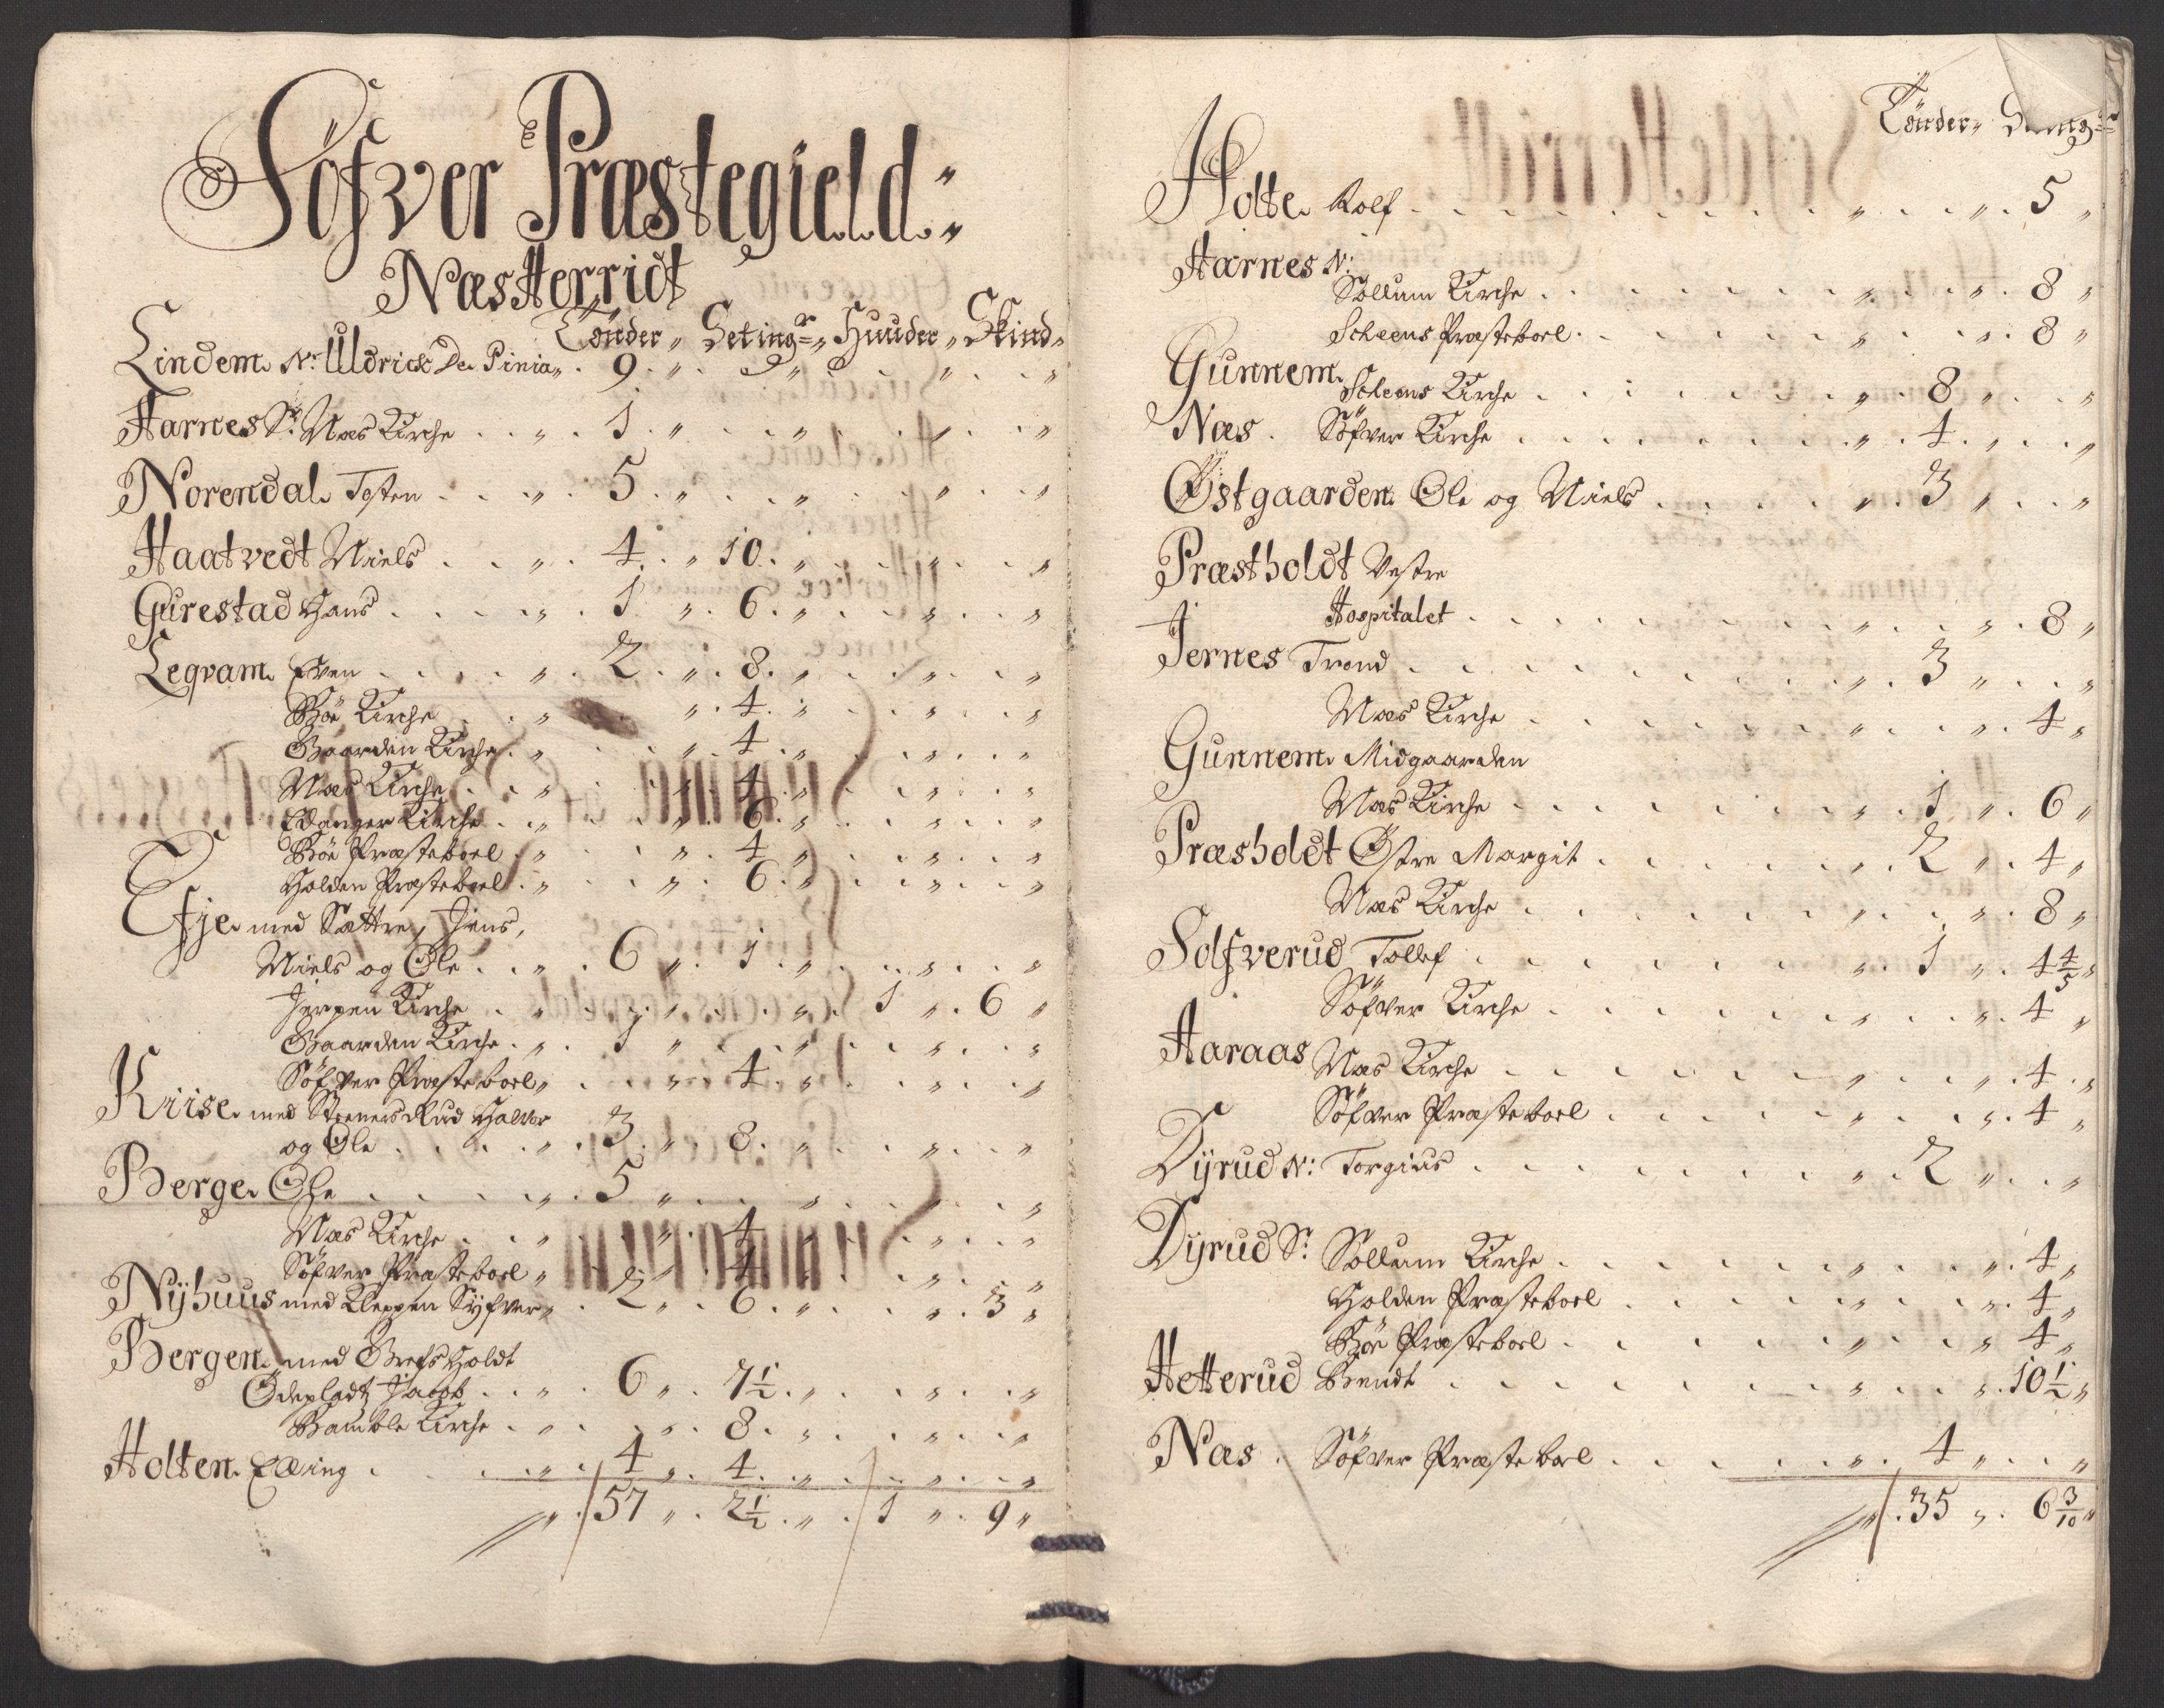 Söfver Præstegield
Næs Herridt
Tönder „ Seting „ Huuder „ Skind „
Lindem N: Uldrick De Pinia „ 9 „ „ „ „
Harnes Sr: Næs Kirche „ 1 „ „ „ „
Norendal Tosten „ 5 „ „ „ „
Haatvedt Niels „ 4 „ 10 „ „ „
Gurestad Hans „ 1 „ 6 „ „ „
Legvam Even „ 2 „ 8 „ „ „
Böe Kirche „ „ 4 „ „ „
Gaarden Kirche „ „ 4 „ „ „
Næs Kirche „ „ 4 „ „ „
Edanger Kirche „ „ 6 „ „ „
Böe Præsteboel „ „ 4 „ „ „
Holden Præsteboel „ „ 6 „ „ „
Efje med Sættre, Jens,
Niels og Ole „ 6 „ 1 „ „ „
Jerpen Kirche „ „ „ 1 „ 6 „
Gaarden Kirche „ 1 „ „ „ „
Söfver Præsteboel „ „ 4 „ „ „
Kiise med Rud Halvor
og Ole „ 3 „ 8 „ „ „
Berge Ole „ 5 „ „ „ „
Næs Kirche „ „ 4 „ „ „
Söfver Præsteboel „ „ 4 „ „ „
Nÿhuus med Kleppen Syfver „ 2 „ 6 „ „ 3 „
Bergen med Grefsholdt
Ödepladtz Jacob „ 6 „ 7½ „ „ „
Bamble Kirche „ „ 8 „ „ „
Holten Elling „ 4 „ 4 „ „ „
„ 57 „ 2½ „ 1 „ 9 „
Tönder „
Holte Rolf „ „ 5 „
Harnes N:
Sollum Kirche „ „ 8 „
Scheens Præsteboel „ „ 8 „
Gunnem
Scheens Kirche „ 8 „ „
Næs Söfver Kirche „ 4 „ „
Østgaarden Ole og Niels „ 3 „ „
Præstholdt Vestre
Hospitalet „ „ 8 „
Jernes Trond „ 3 „ „
Næs Kirche „ „ 4 „
Gunnem Midgaarden
Næs Kirche „ 1 „ 6 „
Præsholdt Østre Margit „ 2 „ 4 „
Næs Kirche „ „ 8 „
Solfverud Tollef „ 1 „ 4 4/5 „
Söfver Kirche „ „ 4 „
Aaraas Næs Kirche „ „ 4 „
Söfver Præsteboel „ „ 4 „
Dÿrud N: Torgius „ 2 „ „
Dÿrud Sr: Sollum Kirche „ „ 4 „
Holden Præsteboel „ „ 4 „
Böe Præsteboel „ „ 4 „
Hetterud Bendt „ „ 10½ „
Næs Söfver Præsteboel „ 4 „ „
„ 35 „ 6 3/10 „